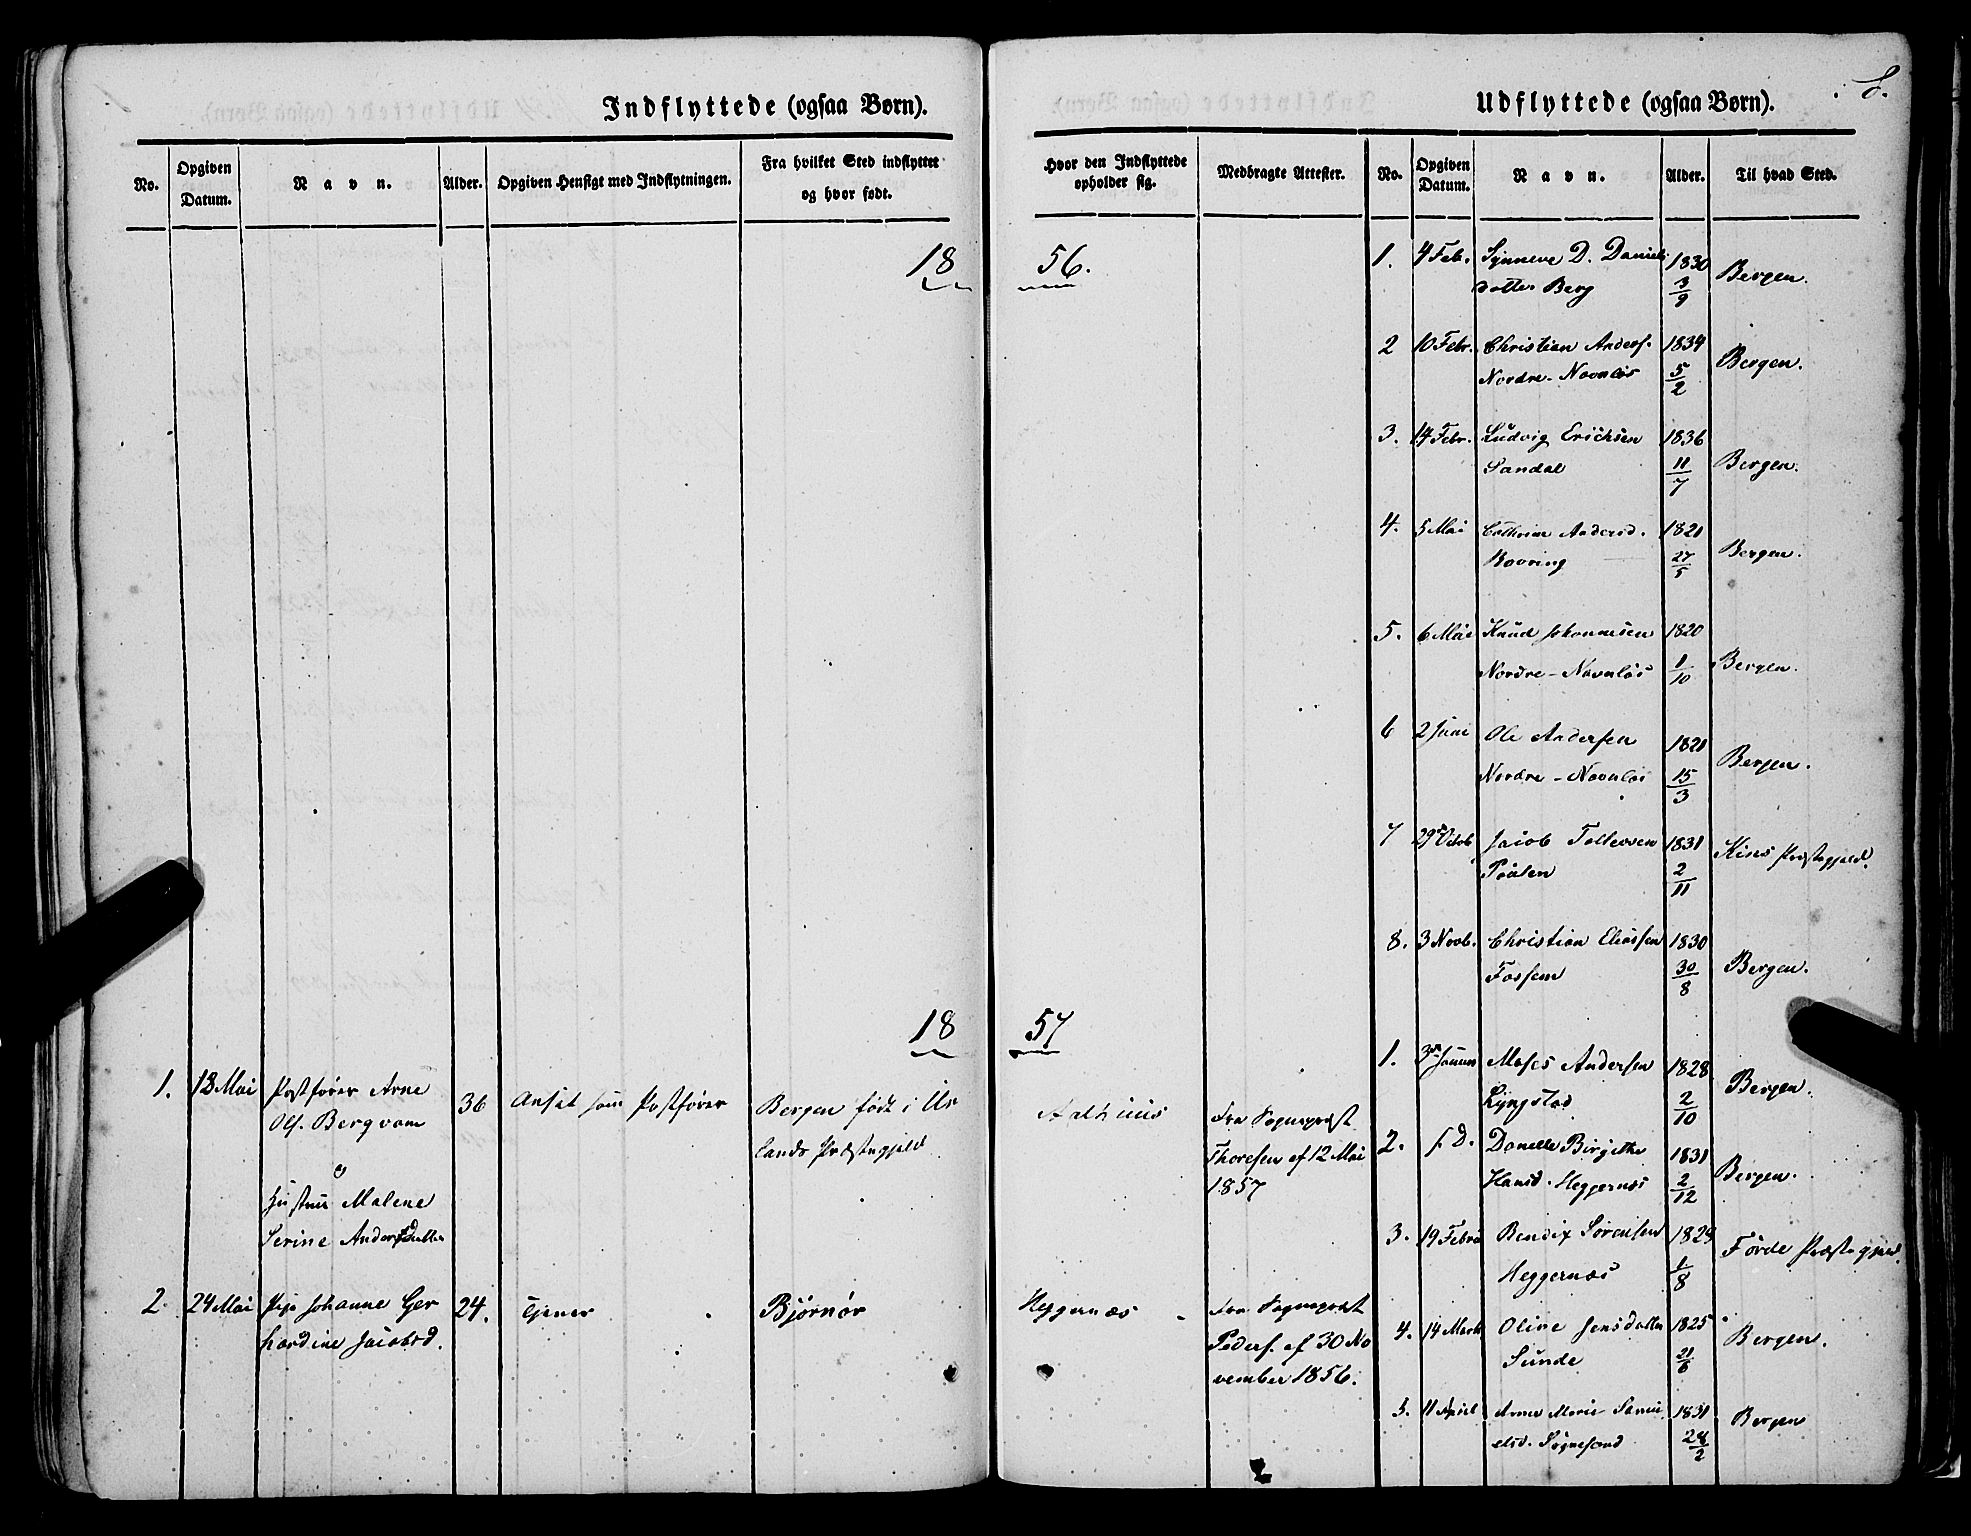 Indflyttede (ogsaa Børn).
No.
Opgiven Datum.
Navn.
Alder.
Opgiven Hensigt med Indflytningen.
Fra hvilket Sted indflyttet
og hvor født.
18
18
1.
18 Mai
Postfører Arne
Ols. Bergvam
o
Hustru Malene
Serine Andersdatter
36
Ansat som Postfører
Bergen født i Ur
lands Præstegjeld
2.
24 Mai
Pige Johanne Ger
hardine Jacobsd.
24.
Tjener
Bjørnør
Udflyttede (ogsaa Børn).
8.
Hvor den Indflyttede
opholder sig.
Medbragte Attester.
No.
Opgiven
Datum.
Navn.
Alder.
Til hvad Sted.
56.
57
Aalhuus
Fra Sognepræst
Thoresen af 12 Mai
1857
Heggernæs
Fra Sognepræst
Peders. af 30 No
vember 1856.
1. 4 Feb. Synneve D. Daniels
datter Berg 1830 3/9 Bergen.
2 10 Febr. Christian Anders.
Nordre-Navnløs 1834 5/2 Bergen.
3. 14 Febr. Ludvig Erichsen
Sandal 1836 11/7 Bergen.
4. 5 Mai Cathrine Andersd.
1821 27/5 Bergen.
5. 6 Mai Knud Johannesen
Nordre-Navnløs 1820 1/10 Bergen.
6 2 Juni Ole Andersen
Nordre-Navnløs 1821 15/3 Bergen.
7 29 Octob Jacob Tollevsen
1831 2/11 Kins Præstegjeld.
8. 3 Novb. Christian Eliassen
Fossem 1830 30/8 Bergen.
1. 3 Januar Moses Andersen
Lyngstad 1828 2/10 Bergen.
2. s. D. Danelle Birgithe
Hansd. Heggernæs 1831 2/12 Bergen.
3. 19 Febru Bendix Sørensen
Heggernæs 1829 1/8 Førde Præstegjeld.
4. 14 Marts Olive Jensdatter
Sunde 1825 21/6 Bergen.
5. 11 April Anna Marie Samu
elsd. Sognesand 1831 28/2 Bergen